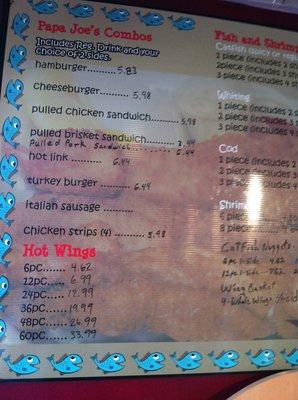 Papa Joe's Combos
Includes Reg. Drink and your
choice of 2 sides.
hamburger.......... 5.83
cheeseburger......... 5.98
pulled chicken sandwich.......... 5.98
pulled brisket sandwich.......... 6.44
Pulled Pork Sandwich.......... 6.44
hot link .......... 6.44
turkey burger .......... 6.44
italian sausage ..........
chicken strips (4) .......... 5.98
Hot Wings
6pc...... 4.62
12pc..... 6.99
24pc..... 12.99
36pc..... 19.99
48pc..... 26.99
60pc..... 33.99
Fish and Shrimp
Catfish (spicy or reg
1 piece (includes 2 s
2piece (includes 3 s
3 piece (includes 4 s
Whiting
1 piece (includes 2
2 piece (includes 3
3 piece (includes
Cod
1 piece (includes 2
2 piece (includes
3 piece (includes
Shrimp
6 piece
8 piece
Catfish Nuggets
6pc 1-Side
12pc 1-Side
Wing Basket
4-Whole Wings